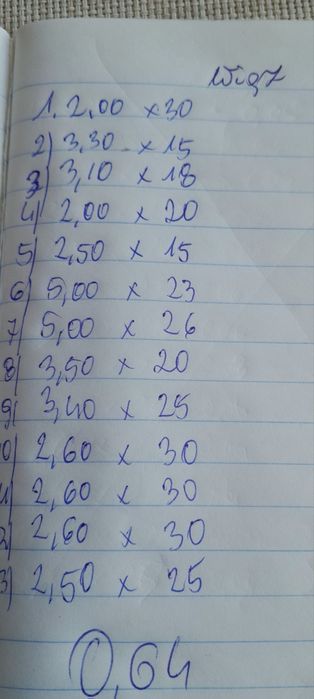 1. 2,00 x 30
2) 3,30 x 15
3) 3,10 x 18
4) 2,00 x 20
5) 2,50 x 15
6) 5,00 x 23
7) 5,00 x 26
8) 3,50 x 20
9) 3,40 x 25
0) 2,60 x 30
1) 2,60 x 30
2) 2,60 x 30
3) 2,50 x 25
0,64